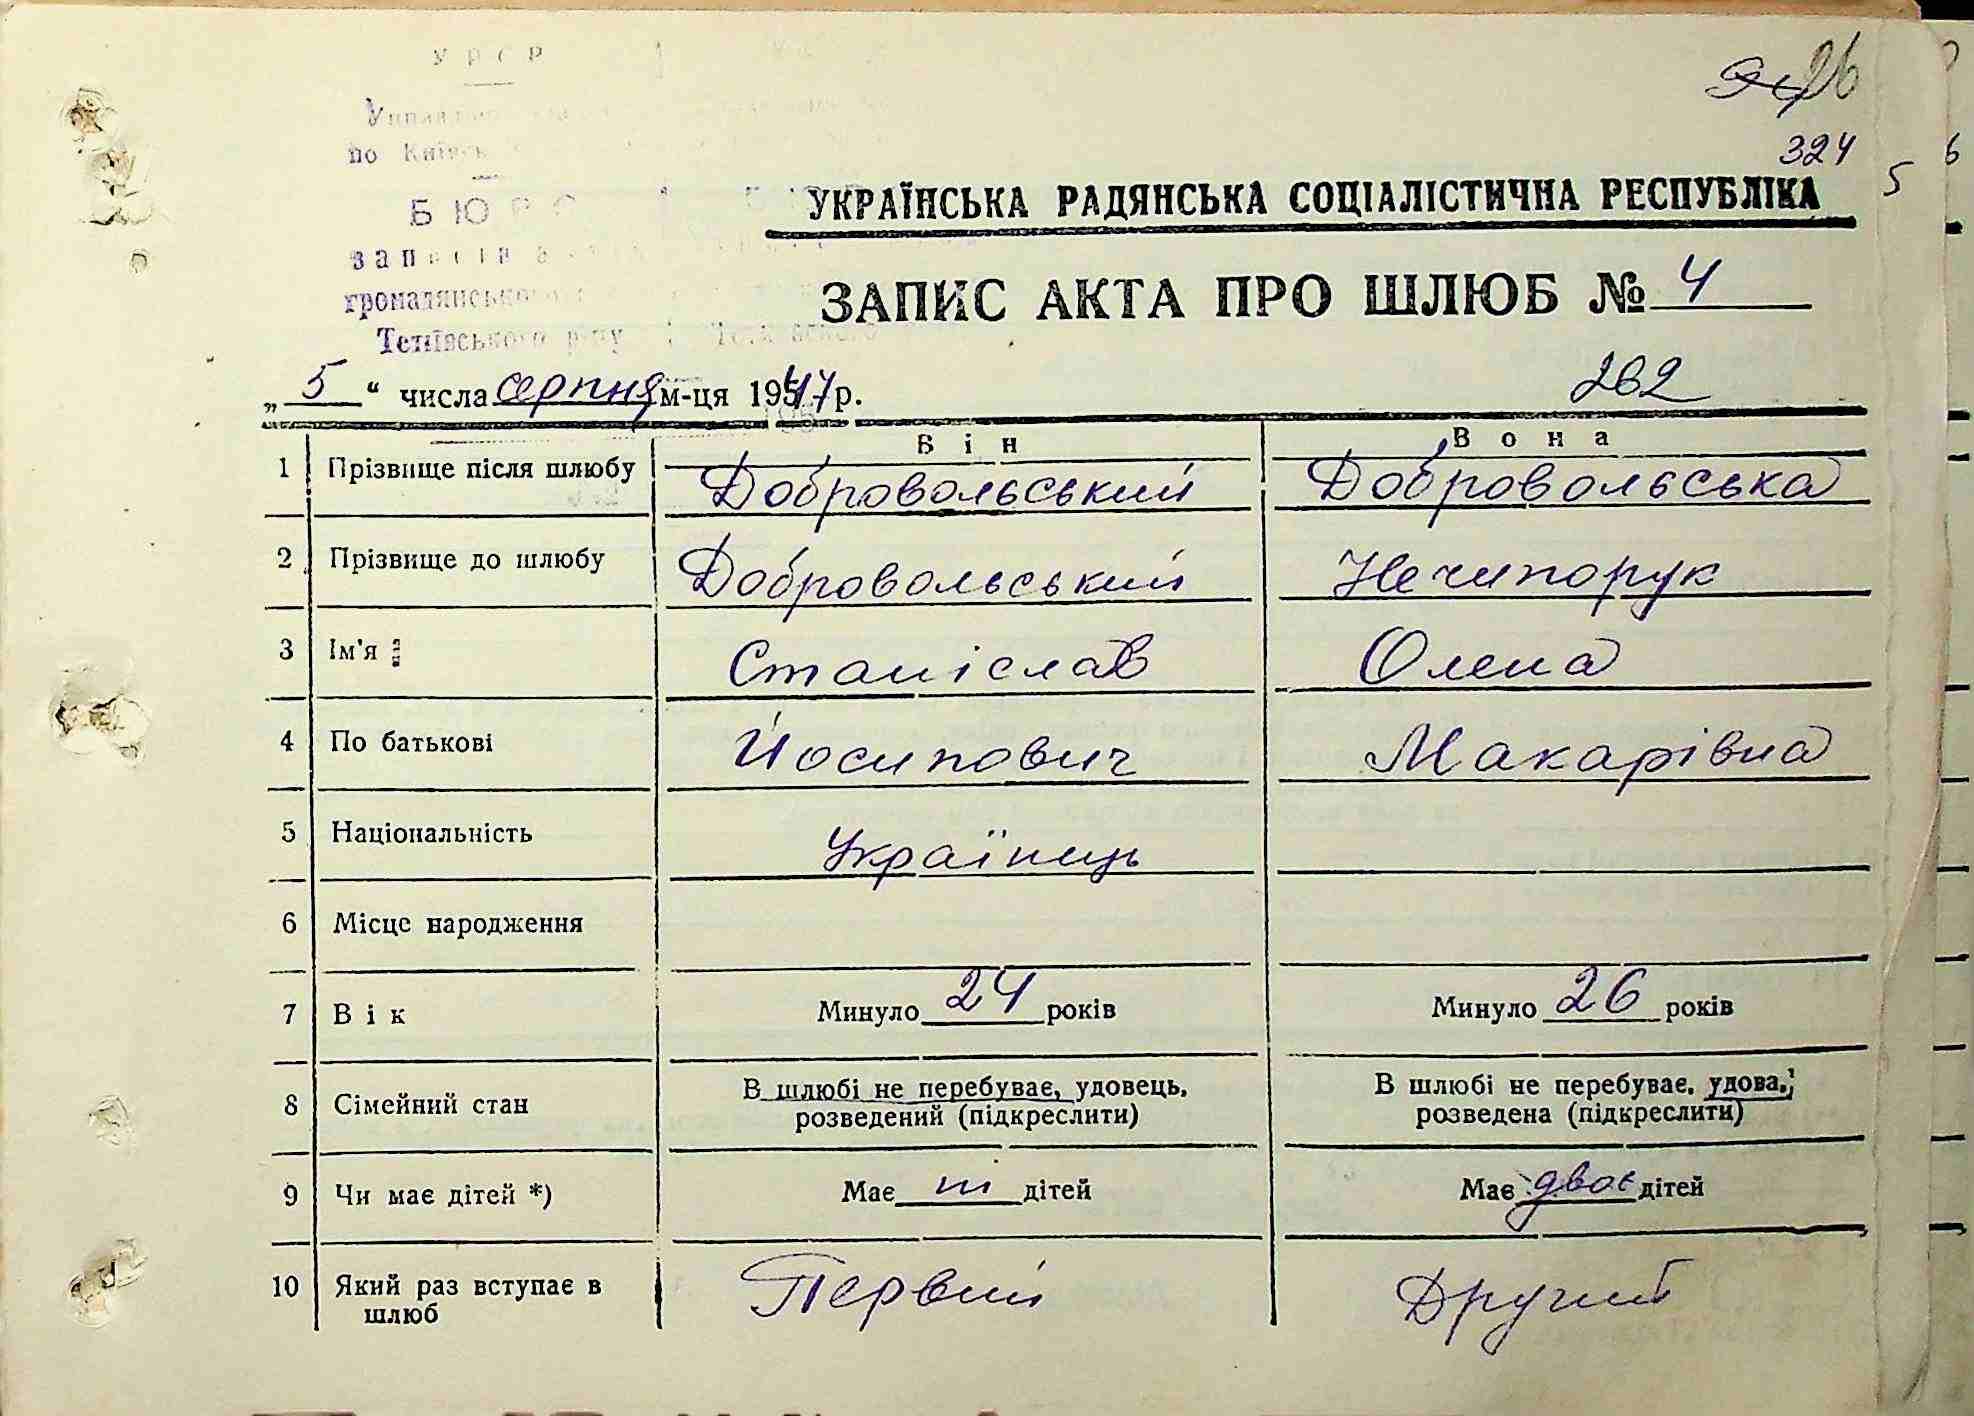 26
324
5
6
У Р С Р
по Київськ
Б Ю Р О
УКРАЇНСЬКА РАДЯНСЬКА СОЦІАЛІСТИЧНА РЕСПУБЛІКА
записів
громадянського
ЗАПИС АКТА ПРО ШЛЮБ № 4
Тетіївського р-ну
262
„ 5 “ числа серпня м-ця 1947 р.
В і н В о н а
1 Прізвище після шлюбу Добровольський Добровольська
2 Прізвище до шлюбу Добровольський Нечипорук
3 Ім'я Станіслав Олена
4 По батькові Йосипович Макарівна
5 Національність Українець
6 Місце народження
7 В і к Минуло 24 років Минуло 26 років
8 Сімейний стан В шлюбі не перебуває, удовець, В шлюбі не перебуває, удова,
розведений (підкреслити) розведена (підкреслити)
9 Чи має дітей *) Має ні дітей Має двоє дітей
10 Який раз вступає в Первий Другий
шлюб